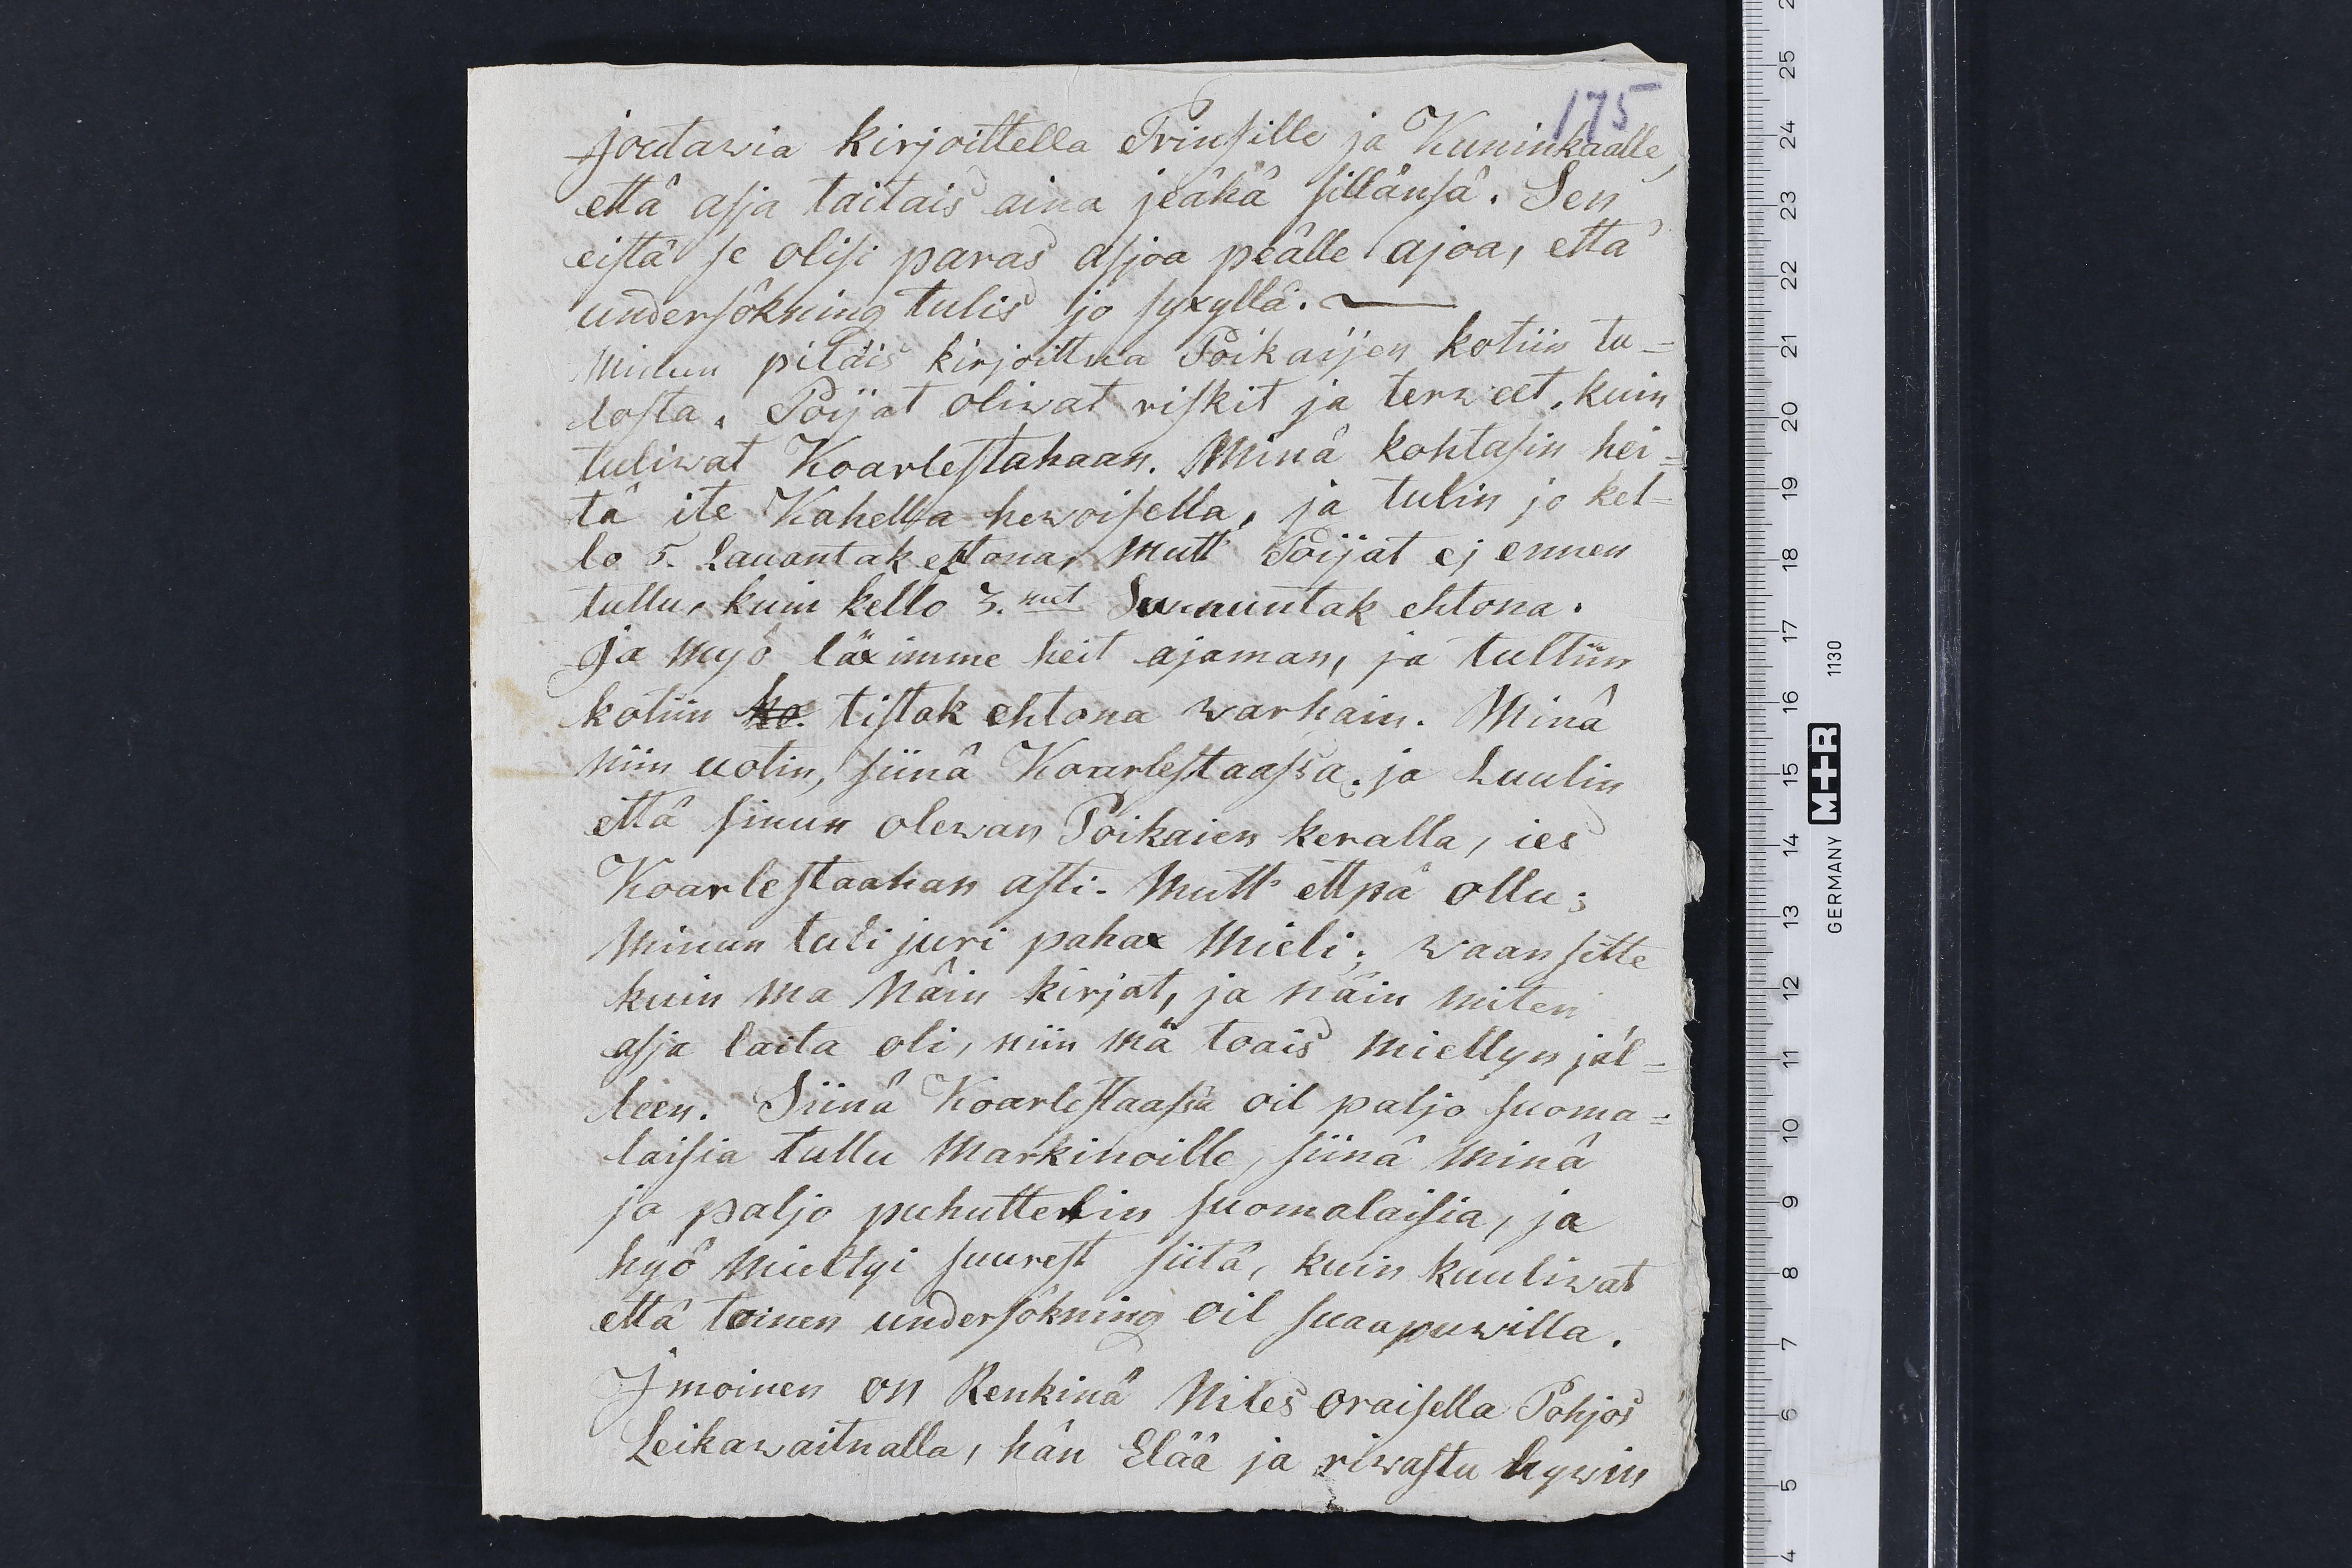 175
joutawia kirjoittella Prinsille ja Kuninkaalle,
että asja taitais aina jeähä sillänsä. Sen
eistä se olisi paras asjoa peälle ajoa, että
undersökning tulis jo syxyllä. —
Minun pitäis kirjoittua Poikaijen kotiin tu=
losta. Poijat oliwat riskit ja terweet, kuin
tuliwat Koarlestahaan. Minä kohtasin hei=
tä ite Kahella hewoisella, ja tulin jo kel=
lo 5. Lauantak ehtona, Mutt Poijat ej ennen
tullu, kuin kello 3. Sunnuntak ehtona.
Ja myö läximme heit ajaman, ja tultiin
kotiin ko. tistak ehtona warhain. Minä
niin uotin, siinä Koarlestaassa. ja Luulin
että sinun olewan Poikaien keralla, ies
Koarlestaahan asti. Mutt ettpä ollu;
Minun tuli juri pahax Mieli; waan sitte
kuin ma Näin kirjat, ja näin miten
asja laita oli, niin mä toais miellyn jäl=
leen. Siinä Koarlestaassa oil paljo suoma=
laisia tullu Markinoille, siinä minä
ja paljo puhuttelin suomalaisia, ja
hyö Mieltyi suurest siitä, kuin kuuliwat
että toinen undersökning oil suaapuwilla.
Jmoinen on Renkinä Niles oraisella Pohjos
Leikawaitnalla, hän Elää ja riwastu hywin
25
24
23
22
21
20
19
18
17
16
15
14
13
12
11
10
9
8
7
6
5
4
GERMANY M+R 1130